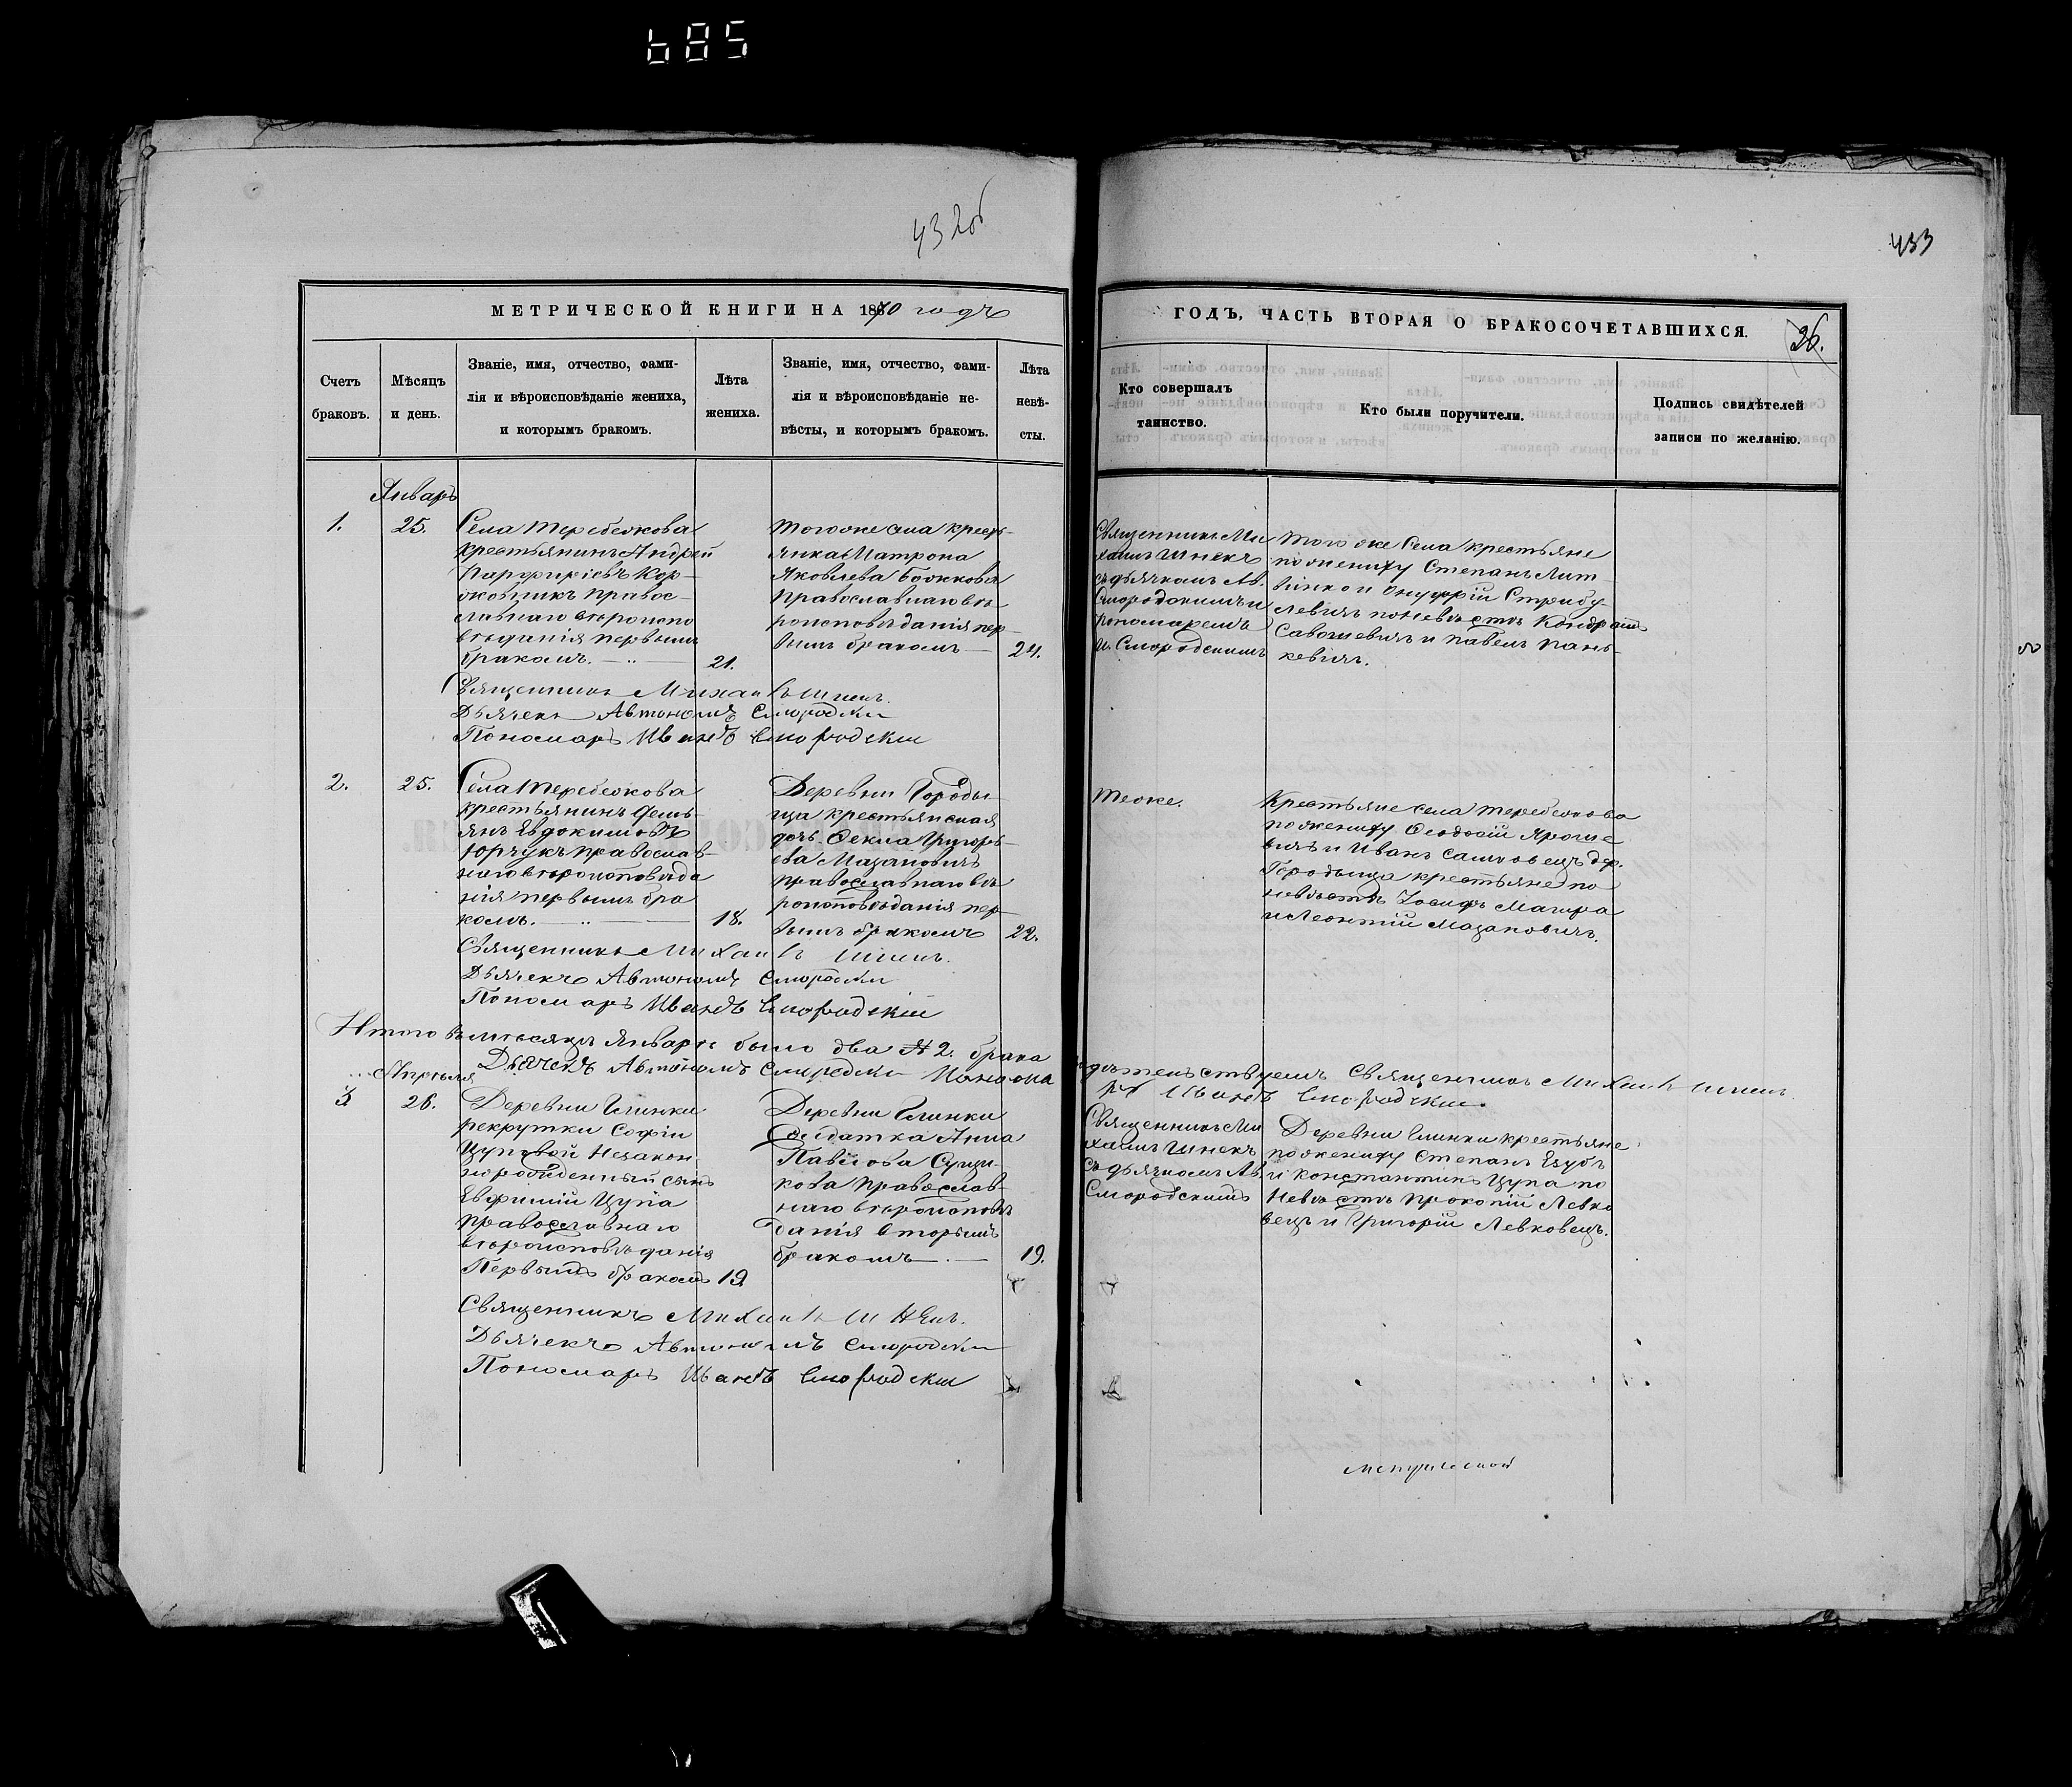 685
432об
433
МЕТРИЧЕСКОЙ КНИГИ НА 1870 годъ
ГОДЪ, ЧАСТЬ ВТОРАЯ О БРАКОСОЧЕТАВШИХСЯ.
26.
Счетъ
браковъ.
Мѣсяцъ
и день.
Званіе, имя, отчество, фами-
лія и вѣроисповѣданіе жениха,
и которымъ бракомъ.
Лѣта
жениха.
Званіе, имя, отчество, фами-
лія и вѣроисповѣданіе не-
вѣсты, и которымъ бракомъ.
Лѣта
невѣ-
сты.
Кто совершалъ
таинство.
Кто были поручители.
Подпись свидѣтелей
записи по желанію.
Январь
1.
25.
Села Теребежова
крестьянинъ Андрей
Парфиріевъ Кор-
жовникъ правос-
лавнаго вѣроиспо
вѣданія первымъ
бракомъ.
21.
Тогоже села кресть-
янка Матрона
Яковлева Божкова
Православнаго вѣ
роисповѣданія пер-
вымъ бракомъ
24.
Священникъ Ми
хаилъ Шнекъ
съ дьячкомъ Ав.
Смородскимъ и
пономаремъ
И. Смородскимъ
Того же Села крестьяне
по жениху Степанъ Лит-
винко и Онуфрій Стрибу
левичъ по невѣстѣ Кондратъ
Савошевичъ и Павелъ Пань-
кевичъ.
Священникъ Михаилъ Шнекъ.
Дьячекъ Автономъ Смородски
Пономарь Иванъ Смородскии
2.
25.
Села Теребежова
крестьянинъ Демь-
янъ Евдокимовъ
Юрчукъ православ-
наго вѣроисповѣда
нія первымъ бра
комъ.
18.
Деревни Городы-
ща крестьянская
дочь Фекла Григорь-
ева Мазановичъ
православнаго вѣ
роисповѣданія пер-
вымъ бракомъ
22.
Тоже.
Крестьяне села Теребежова
по жениху Феодосій Яроше
вичъ и Иванъ Сашковецъ дер.
Городыща крестьяне по
невѣстѣ Іосифъ Мацура
и Леонтій Мазановичъ.
Священникъ Михаилъ Шнекъ.
Дьячекъ Автономъ Смородски
Пономарь Иванъ Смородскій
Итого въ мѣсяцѣ Январѣ было два № 2. брака
Дьячекъ Автономъ Смородски Понома
Священникъ Михаилъ Шнекъ.
рь Иванъ Смородскии.
Апрѣля
3
26.
Деревни Глинки
рекрутки Софіи
Цуповой Незакон
норожденный сынъ
Евфимій Цупа
православнаго
вѣроисповѣданія
Первымъ бракомъ
19.
Деревни Глинки
Солдатка Анна
Павлова
кова Православ-
наго вѣроисповѣ
данія вторымъ
бракомъ
19.
Священникъ Ми
хаилъ Шнекъ
съ дьячкомъ Ав.
Смородскимъ
Деревни Глинки крестьяне
по жениху Степанъ
и Константинъ Цупа по
невѣстѣ Прокопій Левко
вецъ и Григорій Левковецъ.
Священникъ Михаилъ Шнекъ.
Дьячекъ Автономъ Смородски
Пономарь Иванъ Смородскии
метрической